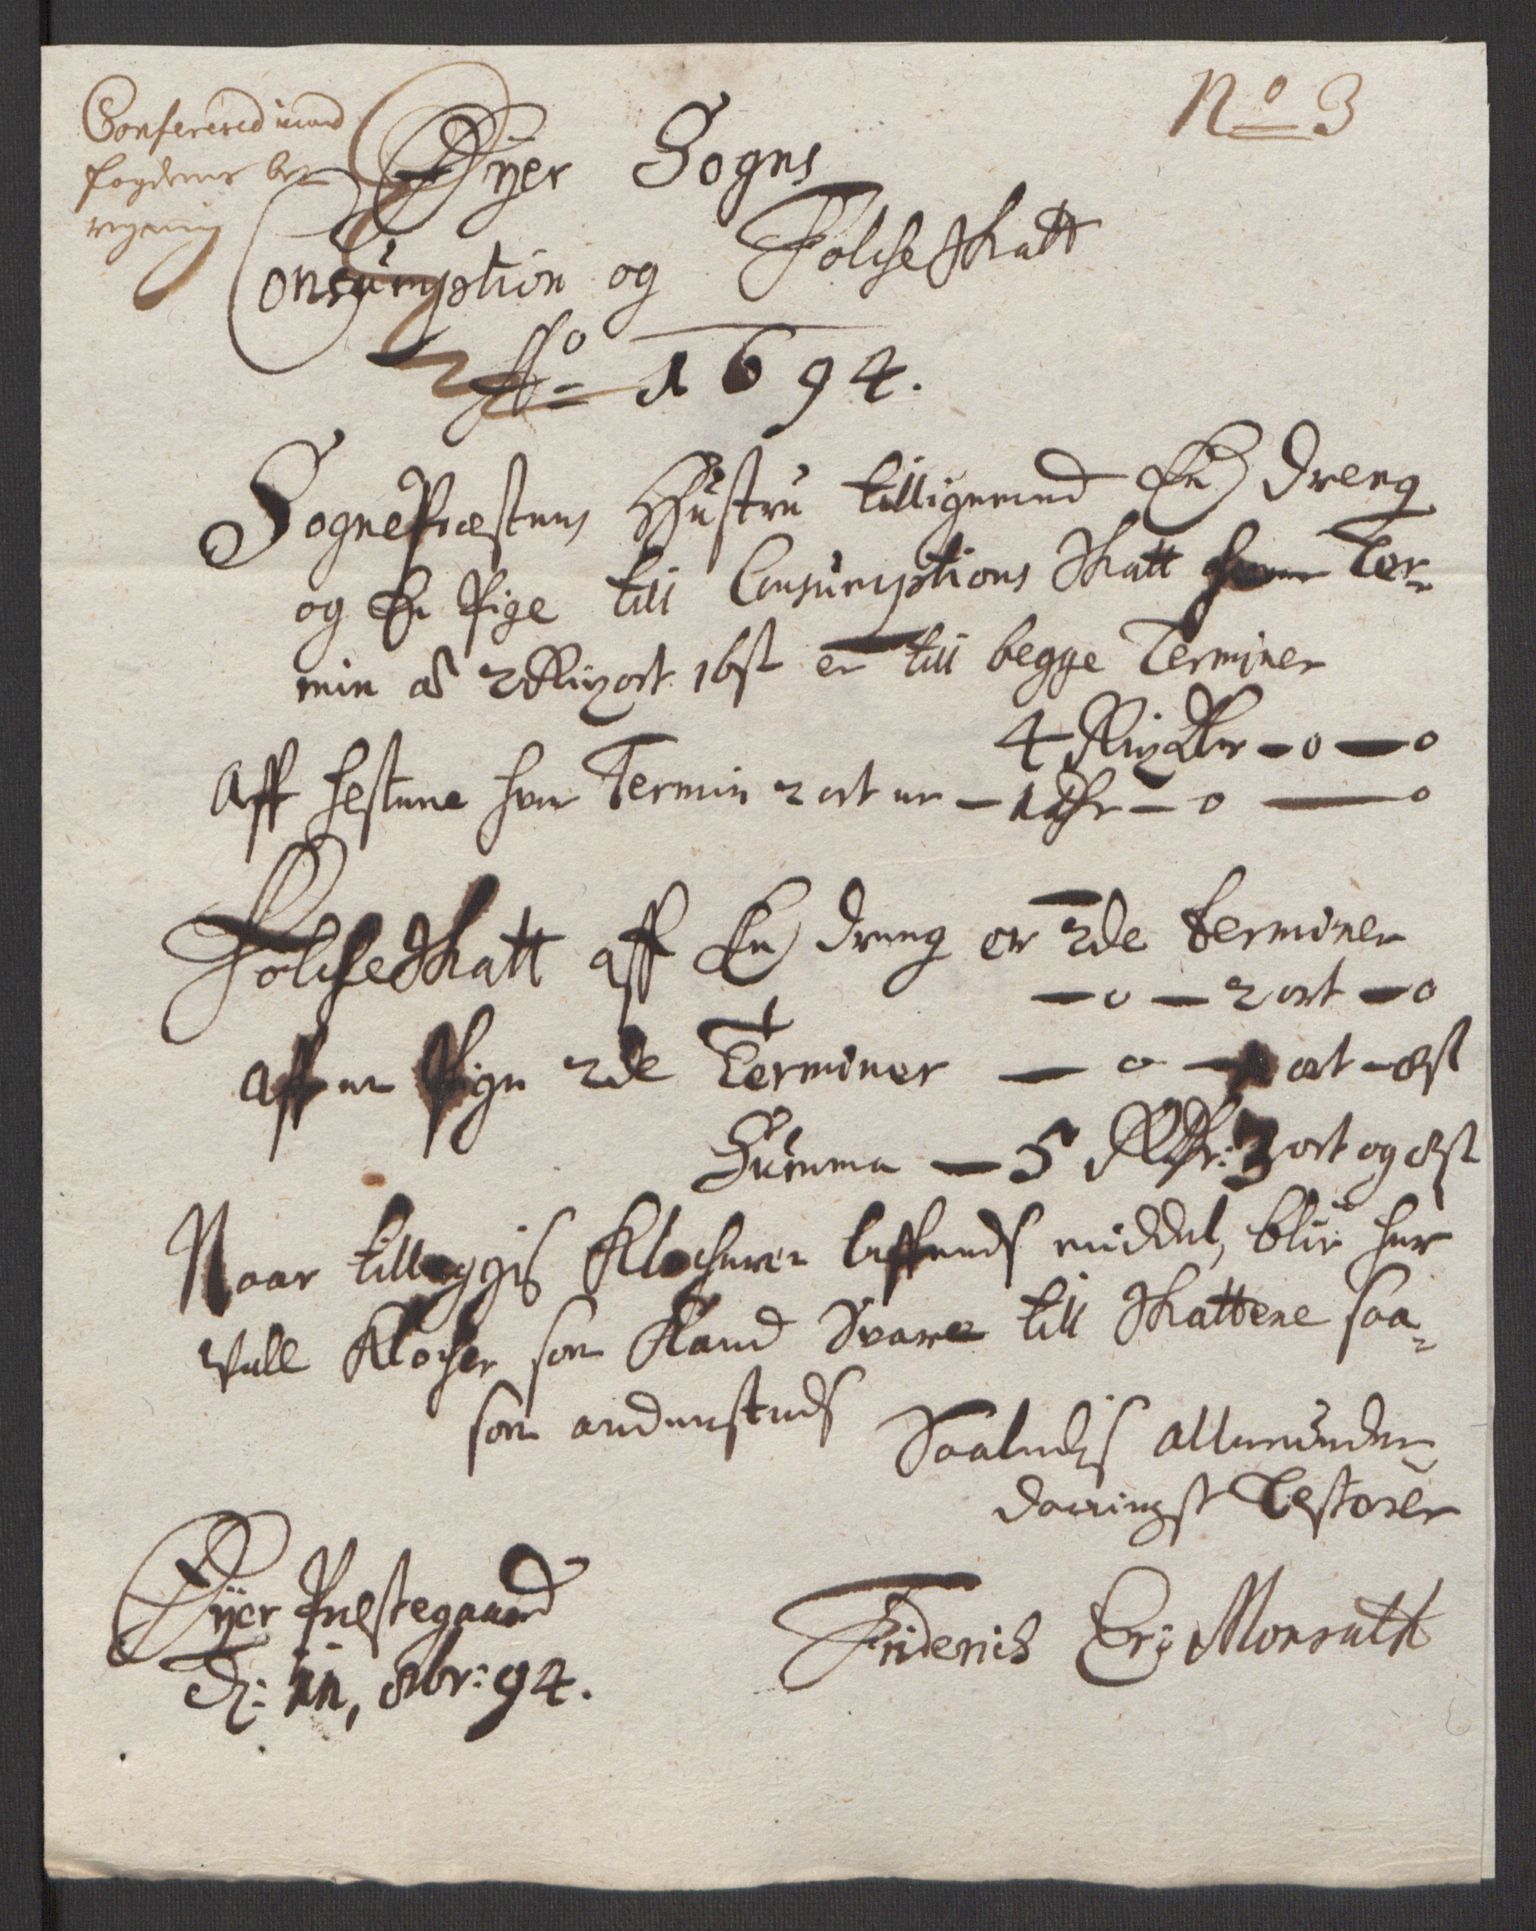 No 3
Confererid imod
fogdens be¬
regning
Øyer Sogns
Consumption og Folcheskatt
Ao 1694.
Sognepræstens Hustru tilligemed En dreng
og En Pige till Consumptions Skatt hver Ter¬
min er 2 Rixort 16 st er till begge Terminer
4 Rixdlr – 0 – 0
Aff hestene hver Termin 2 ort er – 1 dlr – 0 – 0
Folcheskatt aff En dreng er 2de terminer
– 0 – 2 ort – 0
Aff en Pige 2de Terminer – 0 – 1 ort – 8 st
Summa – 5 Rdlr: 3 ort og 8 st
Naar tilleggis Klocheren leffvends middel, blir her
vell Klocher som Kand Svare till Skattene saa¬
som andensteds
Saaledis allerunder¬
danigst testerer
Øyer Prestegaard
d: 11, 8br: 94.
Friderich Er: Monrath